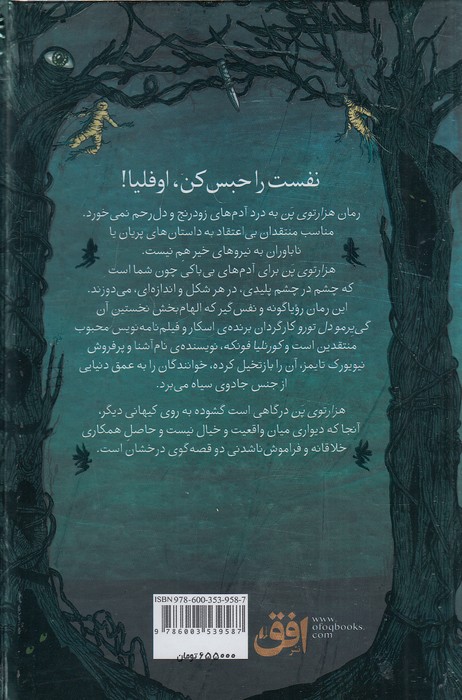 نفست را حبس کن، اوفلیا!
رمان هزارتوی پن به درد آدم‌های زودرنج و دل‌رحم نمی‌خورد.
مناسب منتقدان بی‌اعتقاد به داستان‌های پریان یا
ناباوران به نیروهای خیر هم نیست.
هزارتوی پن برای آدم‌های بی‌باکی چون شما است
که چشم در چشم پلیدی، در هر شکل و اندازه‌ای، می‌دوزند.
این رمان رؤیاگونه و نفس‌گیر که الهام‌بخش نخستین آن
گی‌یرمو دل تورو کارگردان برنده‌ی اسکار و فیلم‌نامه‌نویس محبوب
منتقدین است و کورنلیا فونکه، نویسنده‌ی نام آشنا و پرفروش
نیویورک تایمز، آن را بازتخیل کرده، خوانندگان را به عمق دنیایی
از جنس جادوی سیاه می‌برد.
هزارتوی پن درگاهی است گشوده به روی کیهانی دیگر،
آنجا که دیواری میان واقعیت و خیال نیست و حاصل همکاری
خلاقانه و فراموش‌ناشدنی دو قصه‌گوی درخشان است.
ISBN 978-600-353-958-7
9 786003 539587
۶۵۵۰۰۰ تومان
نشر افق
www.
ofoqbooks.
com